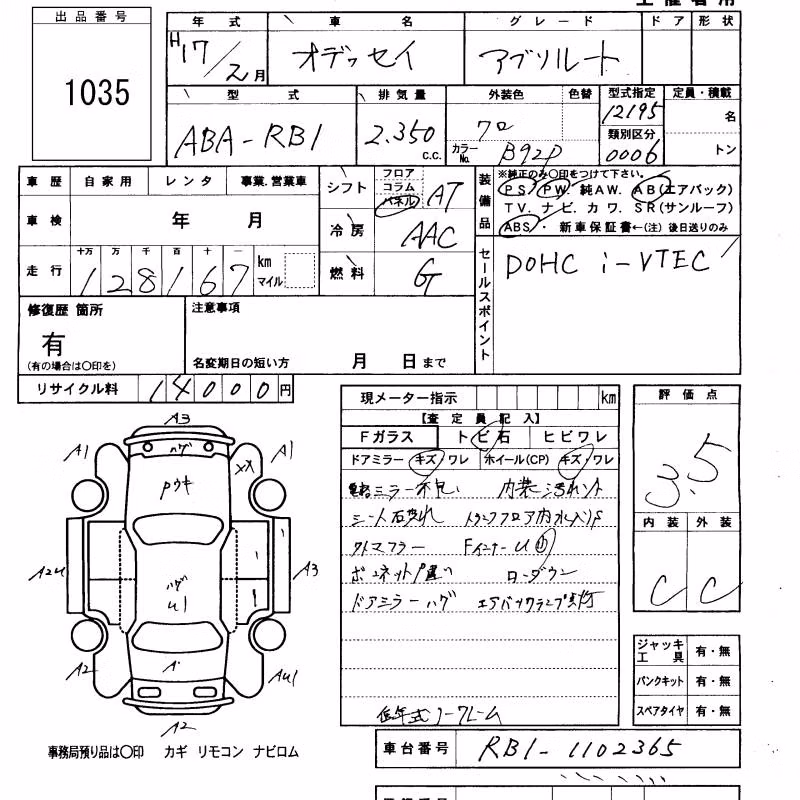 出品番号
1035
年式 車名 グレード ドア 形状
H17/2月 オデッセイ アブソルート
型式 排気量 外装色 色替 型式指定 定員・積載
ABA-RB1 2.350 c.c. クロ 12195 名
カラーNo. B92P 類別区分 0006 トン
車歴 自家用 レンタ 事業.営業車
車検 年 月
十万 万 千 百 十 一
走行 128167 km マイル
シフト フロア コラム パネル AT
冷房 AAC
燃料 G
装備品
※純正のみ〇印をつけて下さい。
PS PW 純AW. AB(エアバック)
TV. ナビ. カワ. SR(サンルーフ)
ABS・ 新車保証書←(注)後日送りのみ
セールスポイント
DOHC i-VTEC
修復歴 箇所
有
(有の場合は〇印を)
注意事項
名変期日の短い方 月 日まで
リサイクル料 14000円
現メーター指示 km
【査定員記入】
Fガラス トビ石 ヒビワレ
ドアミラー キズ/ワレ ホイール(CP) キズ/ワレ
ミラー不良 内装汚れ
シート トランクフロア内
外マフラー Fインナー
ボンネット ローダウン
ドアミラーハゲ エアバックランプ点灯
低年式ノークレーム
評価点
3.5
内装 外装
C C
ジャッキ工具 有・無
パンクキット 有・無
スペアタイヤ 有・無
A3
A1 ハゲ A1
XX
Pウキ
A2U ハゲ U1 A3
A2 A' AU1
A2
事務局預り品は〇印 カギ リモコン ナビロム
車台番号 RB1-1102365